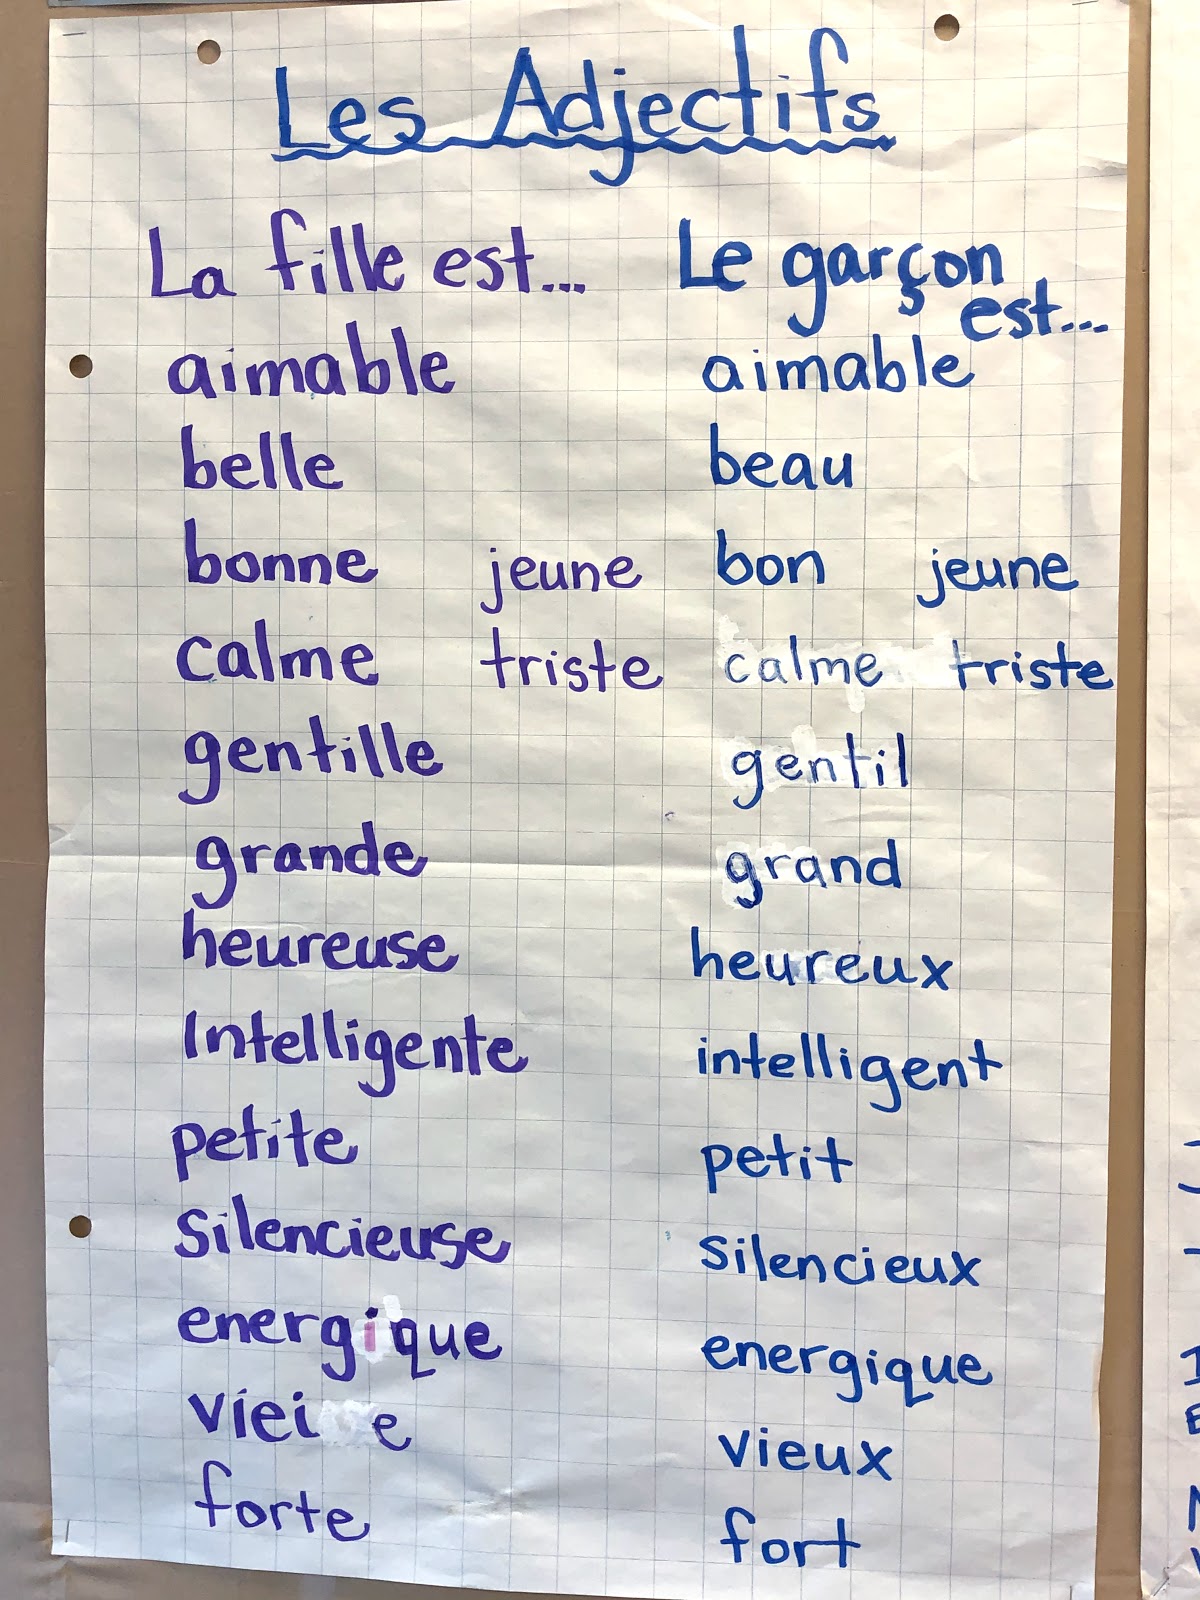 Les Adjectifs
La fille est... Le garçon
est...
aimable aimable
belle beau
bonne jeune bon jeune
calme triste calme triste
gentille gentil
grande grand
heureuse heureux
Intelligente intelligent
petite petit
silencieuse silencieux
energique energique
vieux
forte fort